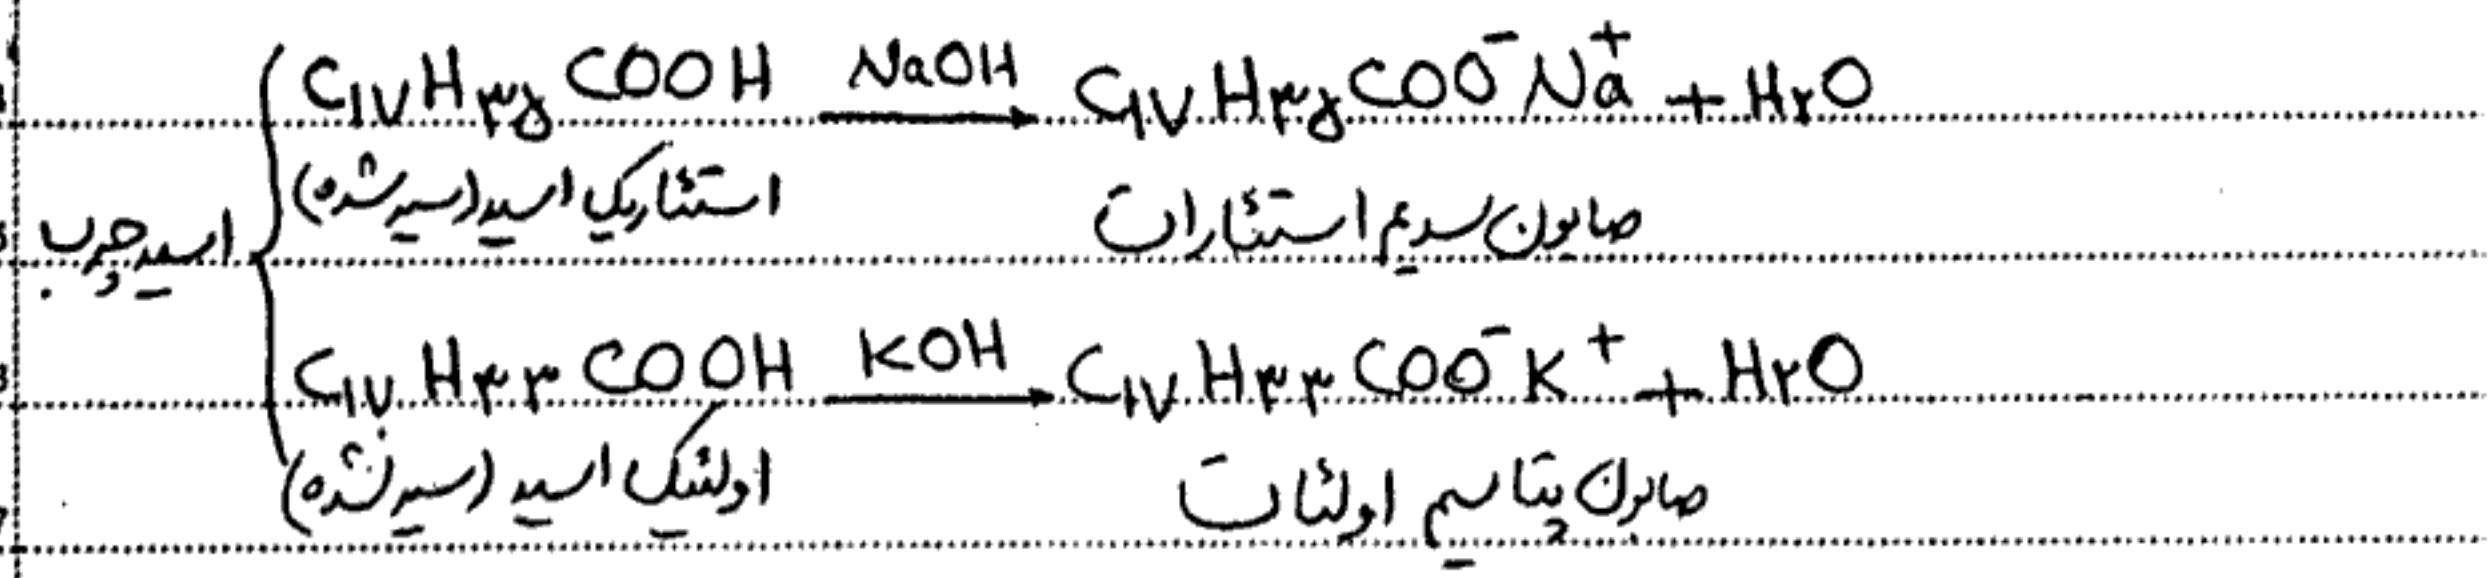 C۱۷H۳۵COOH NaOH → C۱۷H۳۵COO⁻Na⁺ + H۲O
استئاریک اسید (سیر شده) صابون سدیم استئارات
اسید چرب
C۱۷H۳۳COOH KOH → C۱۷H۳۳COO⁻K⁺ + H۲O
اولئیک اسید (سیر نشده) صابون پتاسیم اولئات